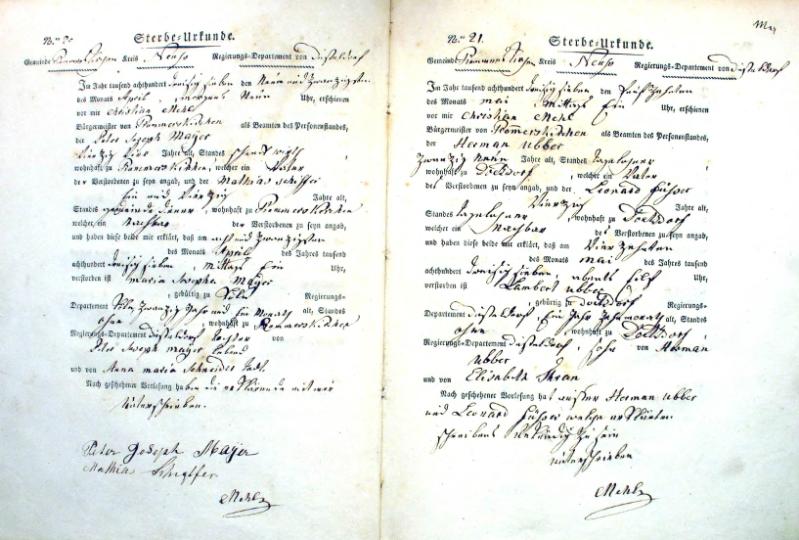 No. 20 Sterbe-Urkunde.
Gemeinde Rommerskirchen Kreis Neuss Regierungs-Departement von Düsseldorf
Im Jahr tausend achthundert dreisig sieben den Neun und zwanzigsten
des Monats April, morgens Neun Uhr, erschienen
vor mir Christian Mehl
Bürgermeister von Rommerskirchen als Beamten des Personenstandes,
der Peter Joseph Mayer
vierzig vier Jahre alt, Standes schenk wirth,
wohnhaft zu Rommerskirchen, welcher ein Vater
der Verstorbenen zu seyn angab, und der Mathias Schiffer
ein und vierzig Jahre alt,
Standes gemeinde diener, wohnhaft zu Rommerskirchen
welcher ein Nachbar der Verstorbenen zu seyn angab,
und haben diese beide mir erklärt, daß am acht und zwanzigsten
des Monats April des Jahres tausend
achthundert dreisig sieben, mittags Ein Uhr,
verstorben ist maria Josepha Mayer
, gebürtig zu Cöln Regierungs-
Departement Cöln zwanzig Jahr und Ein Monath alt, Standes
ohne, wohnhaft zu Rommerskirchen
Regierungs-Departement Düsseldorf tochter von
Peter Joseph mayer lebend
und von Anna maria Schneider todt.
Nach geschehener Vorlesung haben die erklärende mit mir
Unterschrieben.
Peter Joseph Mayer
Mathias Schiffer
Mehl
No. 21. Sterbe-Urkunde.
Gemeinde Rommerskirchen Kreis Neuss Regierungs-Departement von Düsseldorf
Im Jahr tausend achthundert dreisig sieben den fünfzehnten
des Monats mai, mittags Ein Uhr, erschienen
vor mir Christian Mehl
Bürgermeister von Rommerskirchen als Beamten des Personenstandes,
der Herman Ubber
zwanzig neun Jahre alt, Standes tagelohner,
wohnhaft zu Deelsdorf, welcher ein Vater
des Verstorbenen zu seyn angab, und der, Leonard
vierzig Jahre alt,
Standes tagelohner, wohnhaft zu Deelsdorf
welcher ein Nachbar des Verstorbenen zu seyn angab,
und haben diese beide mir erklärt, daß am vierzehnten
des Monats mai des Jahres tausend
achthundert dreisig sieben, abents Elf Uhr,
verstorben ist Lambert Ubber
, gebürtig zu Deelsdorf Regierungs-
Departement Düsseldorf Ein Jahr zehn monath alt, Standes
ohne wohnhaft zu Deelsdorf,
Regierungs-Departement Düsseldorf, sohn von Herman
Ubber
und von Elisabeth
Nach geschehener Vorlesung hat ausser Herman Ubber
und Leonard welche erklärten
schreibens Unkundig zu sein
Unterschrieben
Mehl